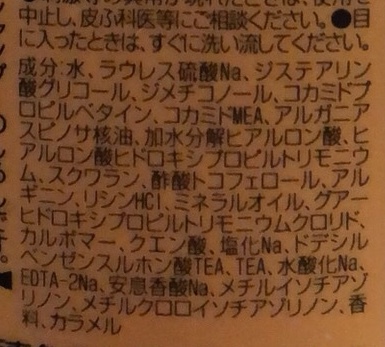 中止し、皮ふ科医等にご相談ください。●目
に入ったときは、すぐに洗い流してください。
成分:水、ラウレス硫酸Na、ジステアリン
酸グリコール、ジメチコノール、コカミドプ
ロピルベタイン、コカミドMEA、アルガニア
スピノサ核油、加水分解ヒアルロン酸、ヒ
アルロン酸ヒドロキシプロピルトリモニウ
ム、スクワラン、酢酸トコフェロール、アル
ギニン、リシンHCl、ミネラルオイル、グアー
ヒドロキシプロピルトリモニウムクロリド、
カルボマー、クエン酸、塩化Na、ドデシル
ベンゼンスルホン酸TEA、TEA、水酸化Na、
EDTA-2Na、安息香酸Na、メチルイソチアゾ
リノン、メチルクロロイソチアゾリノン、香
料、カラメル